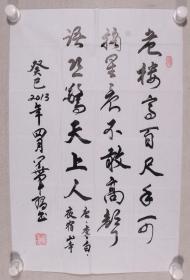 危楼高百尺手可
摘星辰不敢高声
语恐惊天上人
唐李白
夜宿山寺
癸巳2013年四月